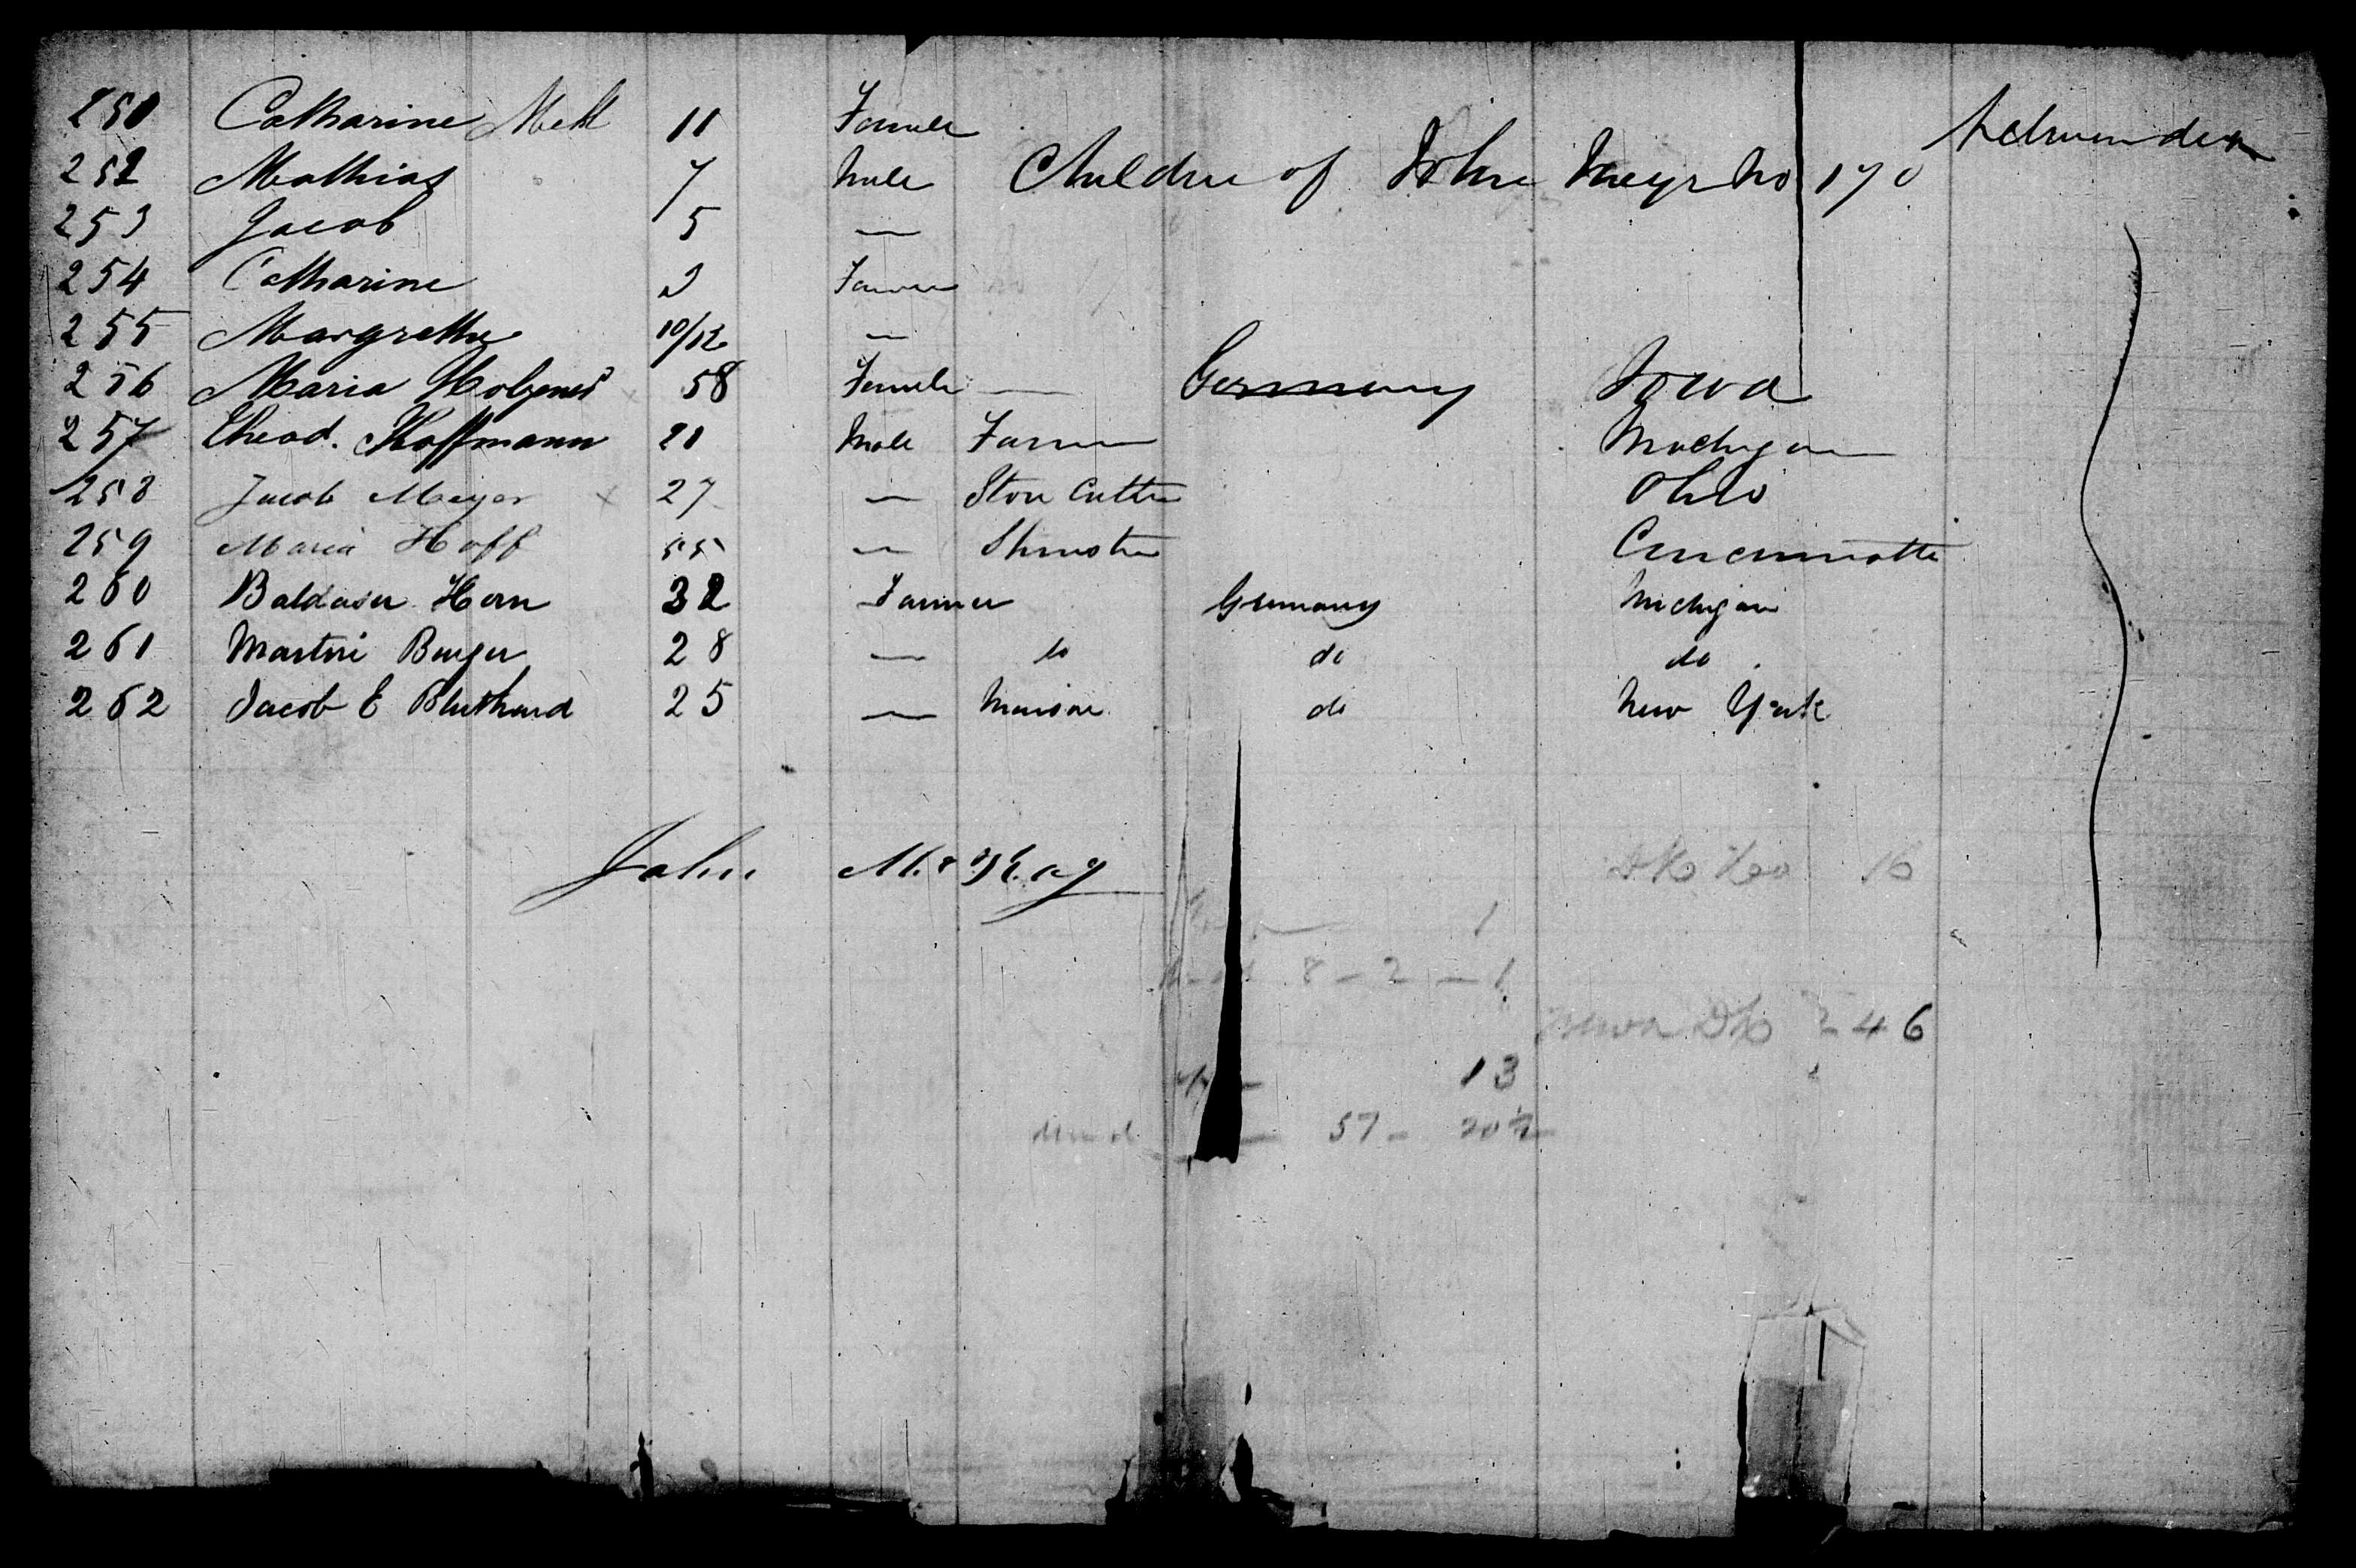 251 Catharine Mell 11 Female
252 Mathias 7 Male Children of John Meyr No 170
253 Jacob 5 —
254 Catharine 2 Female
255 Margrethe 10/12 —
256 Maria 58 Female — Germany Iowa
257 Theod. Hoffmann 21 Male Farmer Michigan
258 Jacob Meyer x 27 — Stone Cutter Ohio
259 Maria Hoff 55 — Cincinnatti
260 Baldaser Horn 32 Farmer Germany Michigan
261 Martin Berger 28 — do do do
262 Jacob E Bluthard 25 — Mason do New York
John McKay
16
1
8 - 2 - 1
246
13
57 -